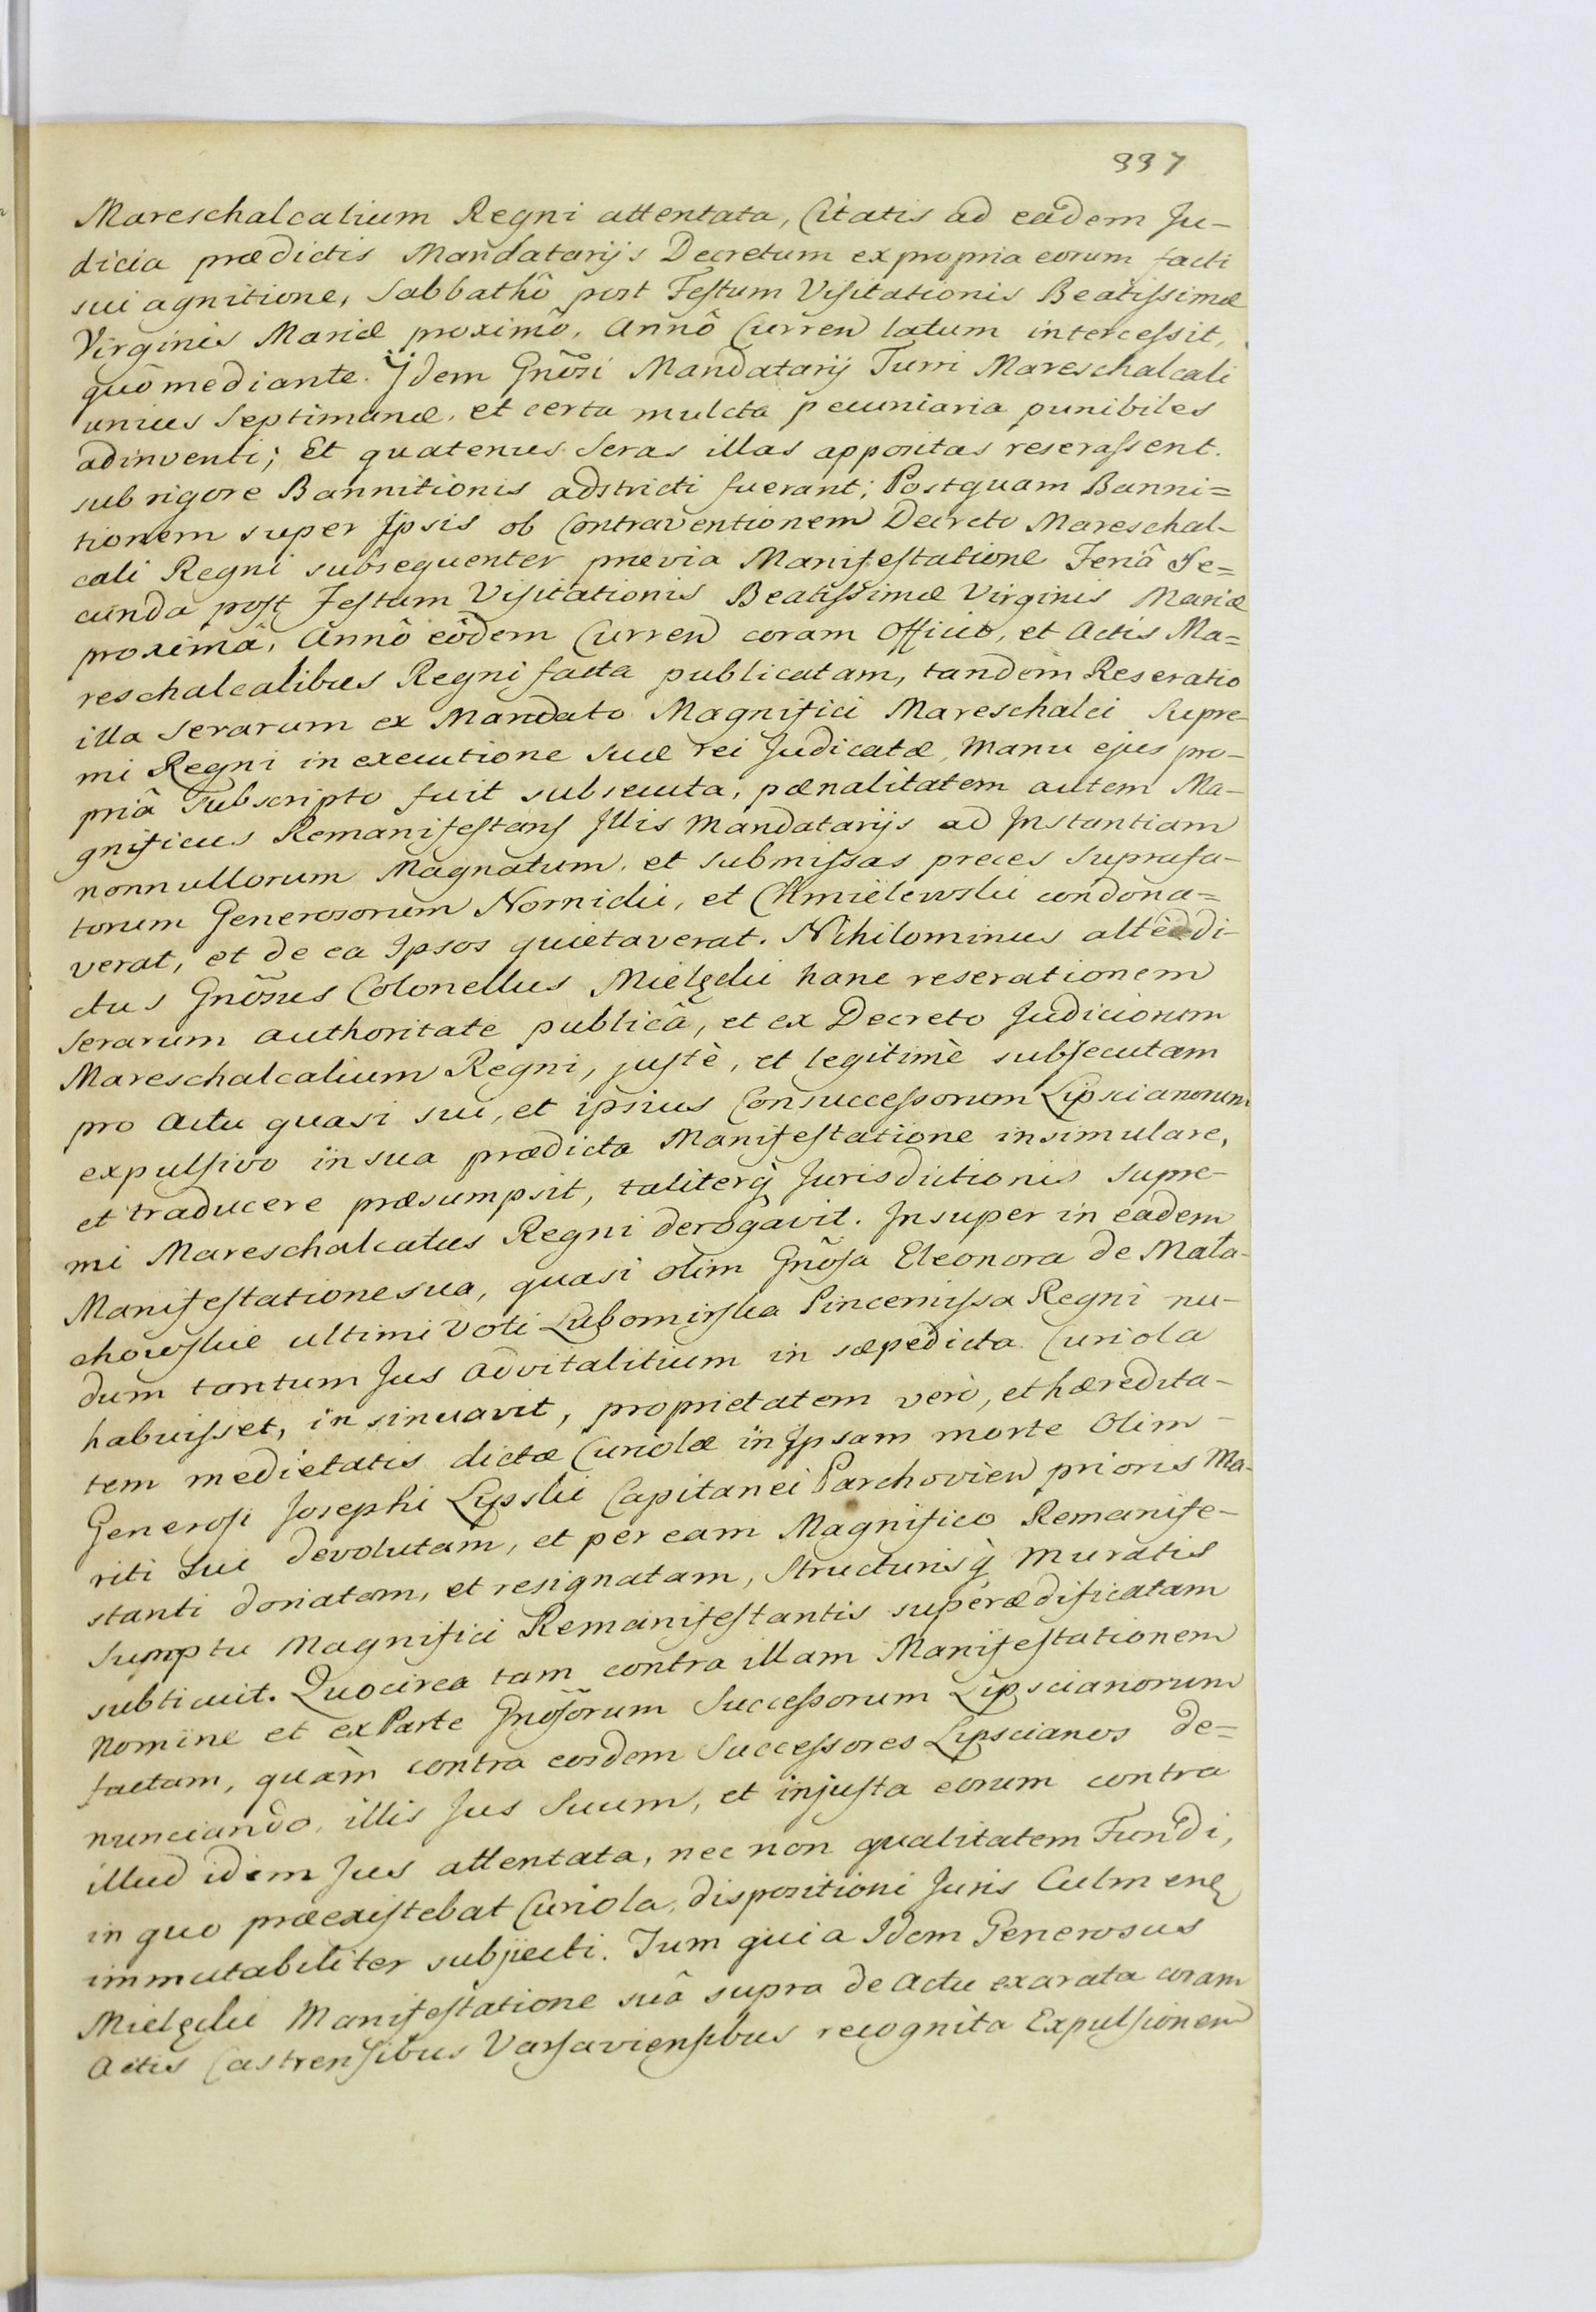 337
Mareschalcalium Regni attentata, Citatis ad eadem Ju-
dicia prædictis Mandatarijs Decretum ex propria eorum facti
sui agnitione, Sabbathô post Festum Visitationis Beatissimæ
Virginis Mariæ proximô, Annô Curren latum intercessit,
quô mediante. Ijdem Gnõsi Mandatarij Turri Mareschalcali
unius Septimanæ, et certa mulcta pecuniaria punibiles
adinventi; Et quatenus Seras illas appositas reserassent.
sub rigore Bannitionis adstricti fuerant; Postquam Banni=
tionem super Ipsis ob Contraventionem Decreto Mareschal-
cali Regni subsequenter prævia Manifestatione Feriâ Se=
cunda post Festum Visitationis Beatissimæ Virginis Mariæ
proximâ, Annô eôdem Curren coram Officio, et Actis Ma=
reschalcalibus Regni facta publicatam, tandem Reseratio
illa Serarum ex Mandato Magnifici Mareschalci Supre-
mi Regni in executione suæ rei Judicatæ, Manu ejus pro-
priâ Subscripto fuit subsecuta, pænalitatem autem Ma-
gnificus Remanifestans Illis Mandatarijs ad Instantiam
nonnullorum Magnatum, et submissas preces suprafa-
torum Generosorum Nornicki, et Chmielewski condona=
verat, et de ea Ipsos quietaverat. Nihilominus altè di-
ctus Gnõsus Colonellus Mielzcki hanc reserationem
Serarum authoritate publicâ, et ex Decreto Judiciorum
Mareschalcalium Regni, justè, et legitimè subsecutam
pro Actu quasi sui, et ipsius Consuccessorum Lipscianorum
expulsivo in sua prædicta Manifestatione insimulare,
et traducere præsumpsit, taliterq Jurisdictionis Supre-
mi Mareschalcatus Regni derogavit. Insuper in eadem
Manifestatione sua, quasi olim Gnõsa Eleonora de Mała-
chowskie ultimi Voti Lubomirska Pincernissa Regni nu-
dum tantum Jus advitalitium in sæpedicta Curiola
habuisset, insinuavit, proprietatem verò, et hæredita-
tem medietatis dictæ Curiolæ in Ipsam morte Olim
Generosi Josephi Lipski Capitanei Parchovien prioris Ma-
riti sui devolutam, et per eam Magnifico Remanife-
stanti donatam, et resignatam, Structurisq Muratis
Sumptu Magnifici Remanifestantis superædificatam
subticuit. Quocirca tam contra illam Manifestationem
Nomine et ex Parte Gnosõrum Successorum Lipscianorum
factam, quàm contra eosdem Successores Lipscianos de=
nunciando, illis Jus Suum, et injusta eorum contra
illud idem Jus attentata, nec non qualitatem Fundi,
in quo præexistebat Curiola, dispositioni Juris Culmen
immutabiliter subjiecti. Tum quia Idem Generosus
Mielzcki Manifestatione suâ supra de Actu exarata coram
Actis Castrensibus Varsaviensibus recognita Expulsionem